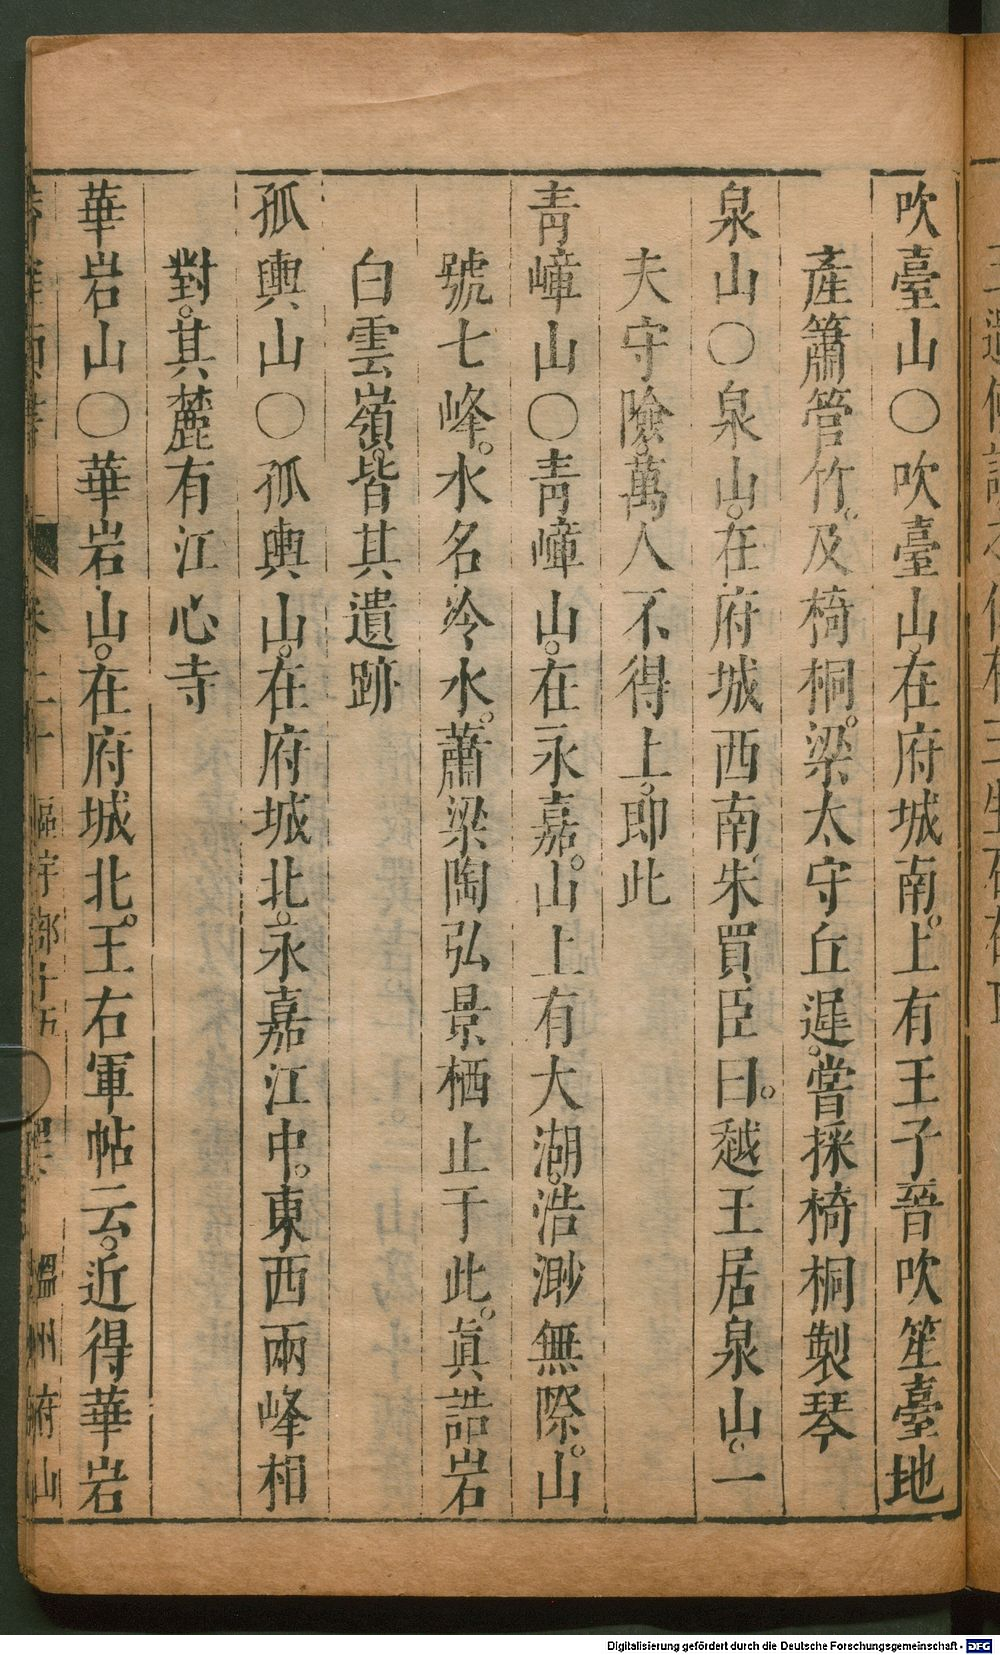 吹臺山○吹臺山。在府城南。上有王子晉吹笙臺地
產簫管竹。及椅桐。梁太守丘遲。嘗採椅桐製琴
泉山○泉山。在府城西南朱買臣曰。越王居泉山。一
夫守險。萬人不得上。即此
青嶂山○青嶂山。在永嘉。山上有大湖。浩渺無際。山
號七峰。水名冷水。蕭梁陶弘景栖止于此。眞誥岩
白雲嶺。皆其遺跡
孤輿山○孤輿山。在府城北。永嘉江中。東西兩峰相
對。其麓有江心寺
華岩山○華岩山。在府城北。王右軍帖云。近得華岩
區宇部 溫州府山
Digitalisierung gefördert durch die Deutsche Forschungsgemeinschaft - DFG